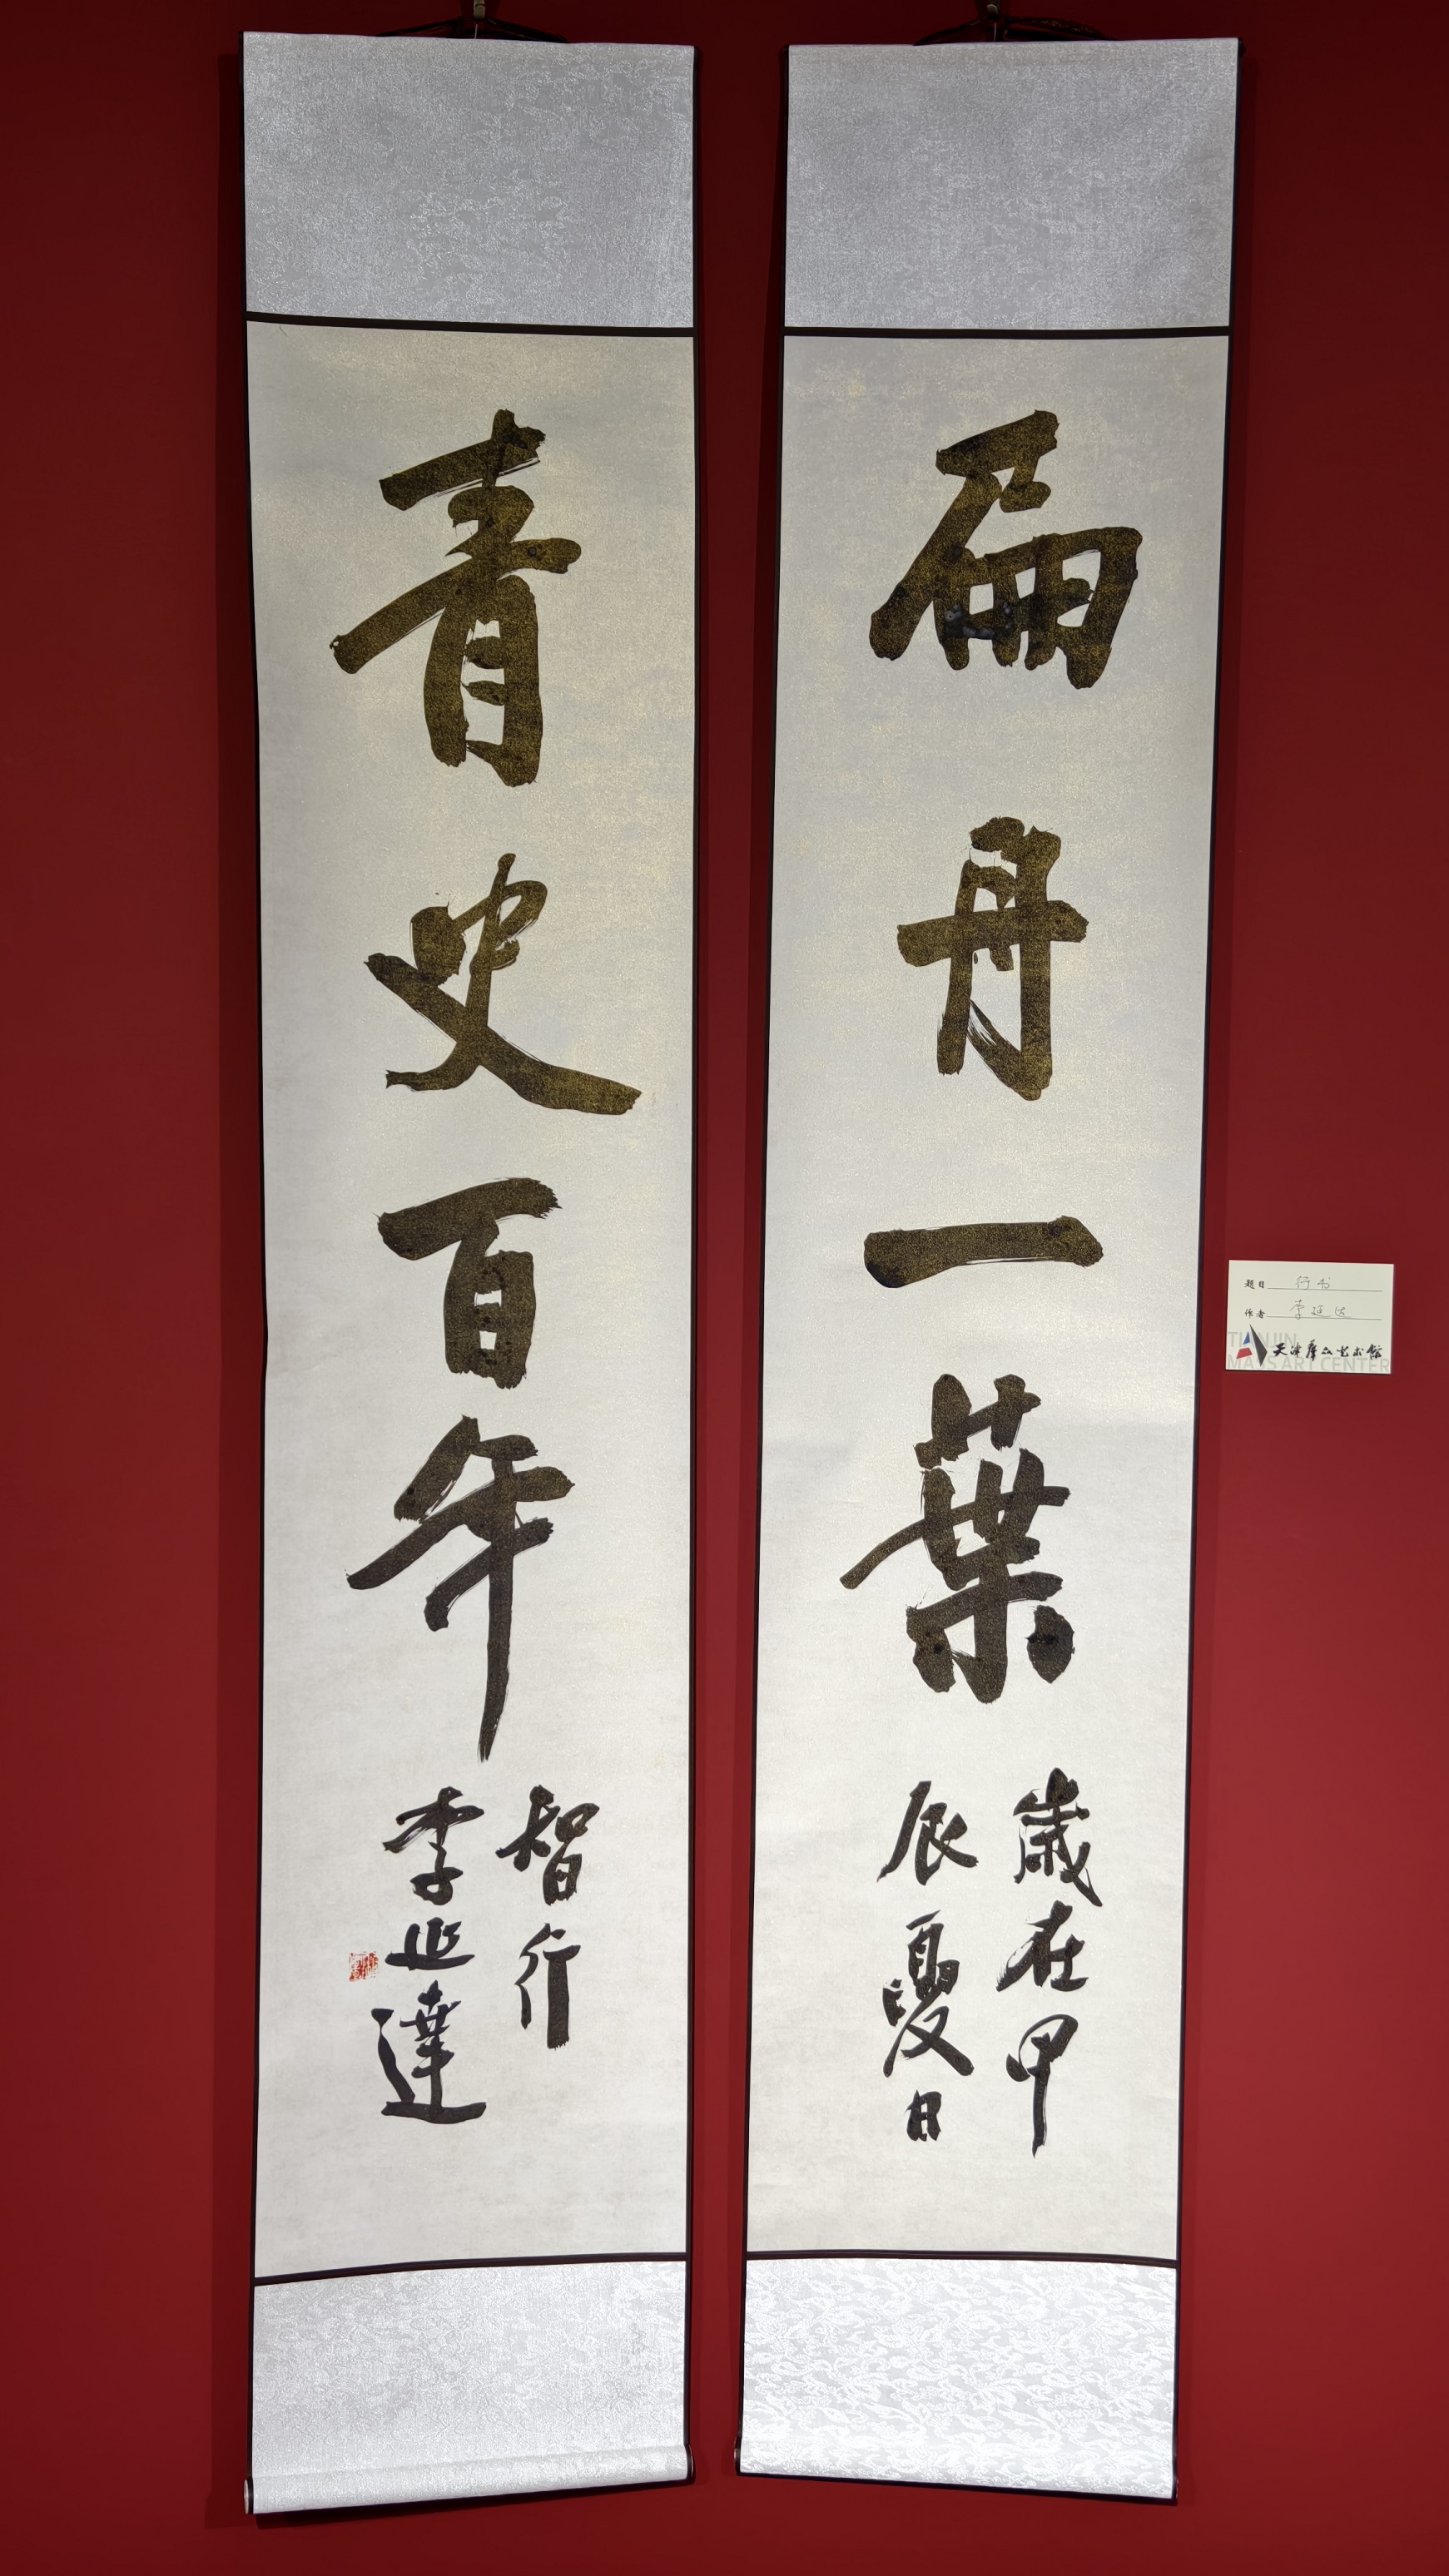 扁舟一葉
歲在甲
辰夏日
青史百年
智行
李延達
题目 行书
作者 李延达
TIANJIN
MASS ART CENTER
天津群众艺术馆